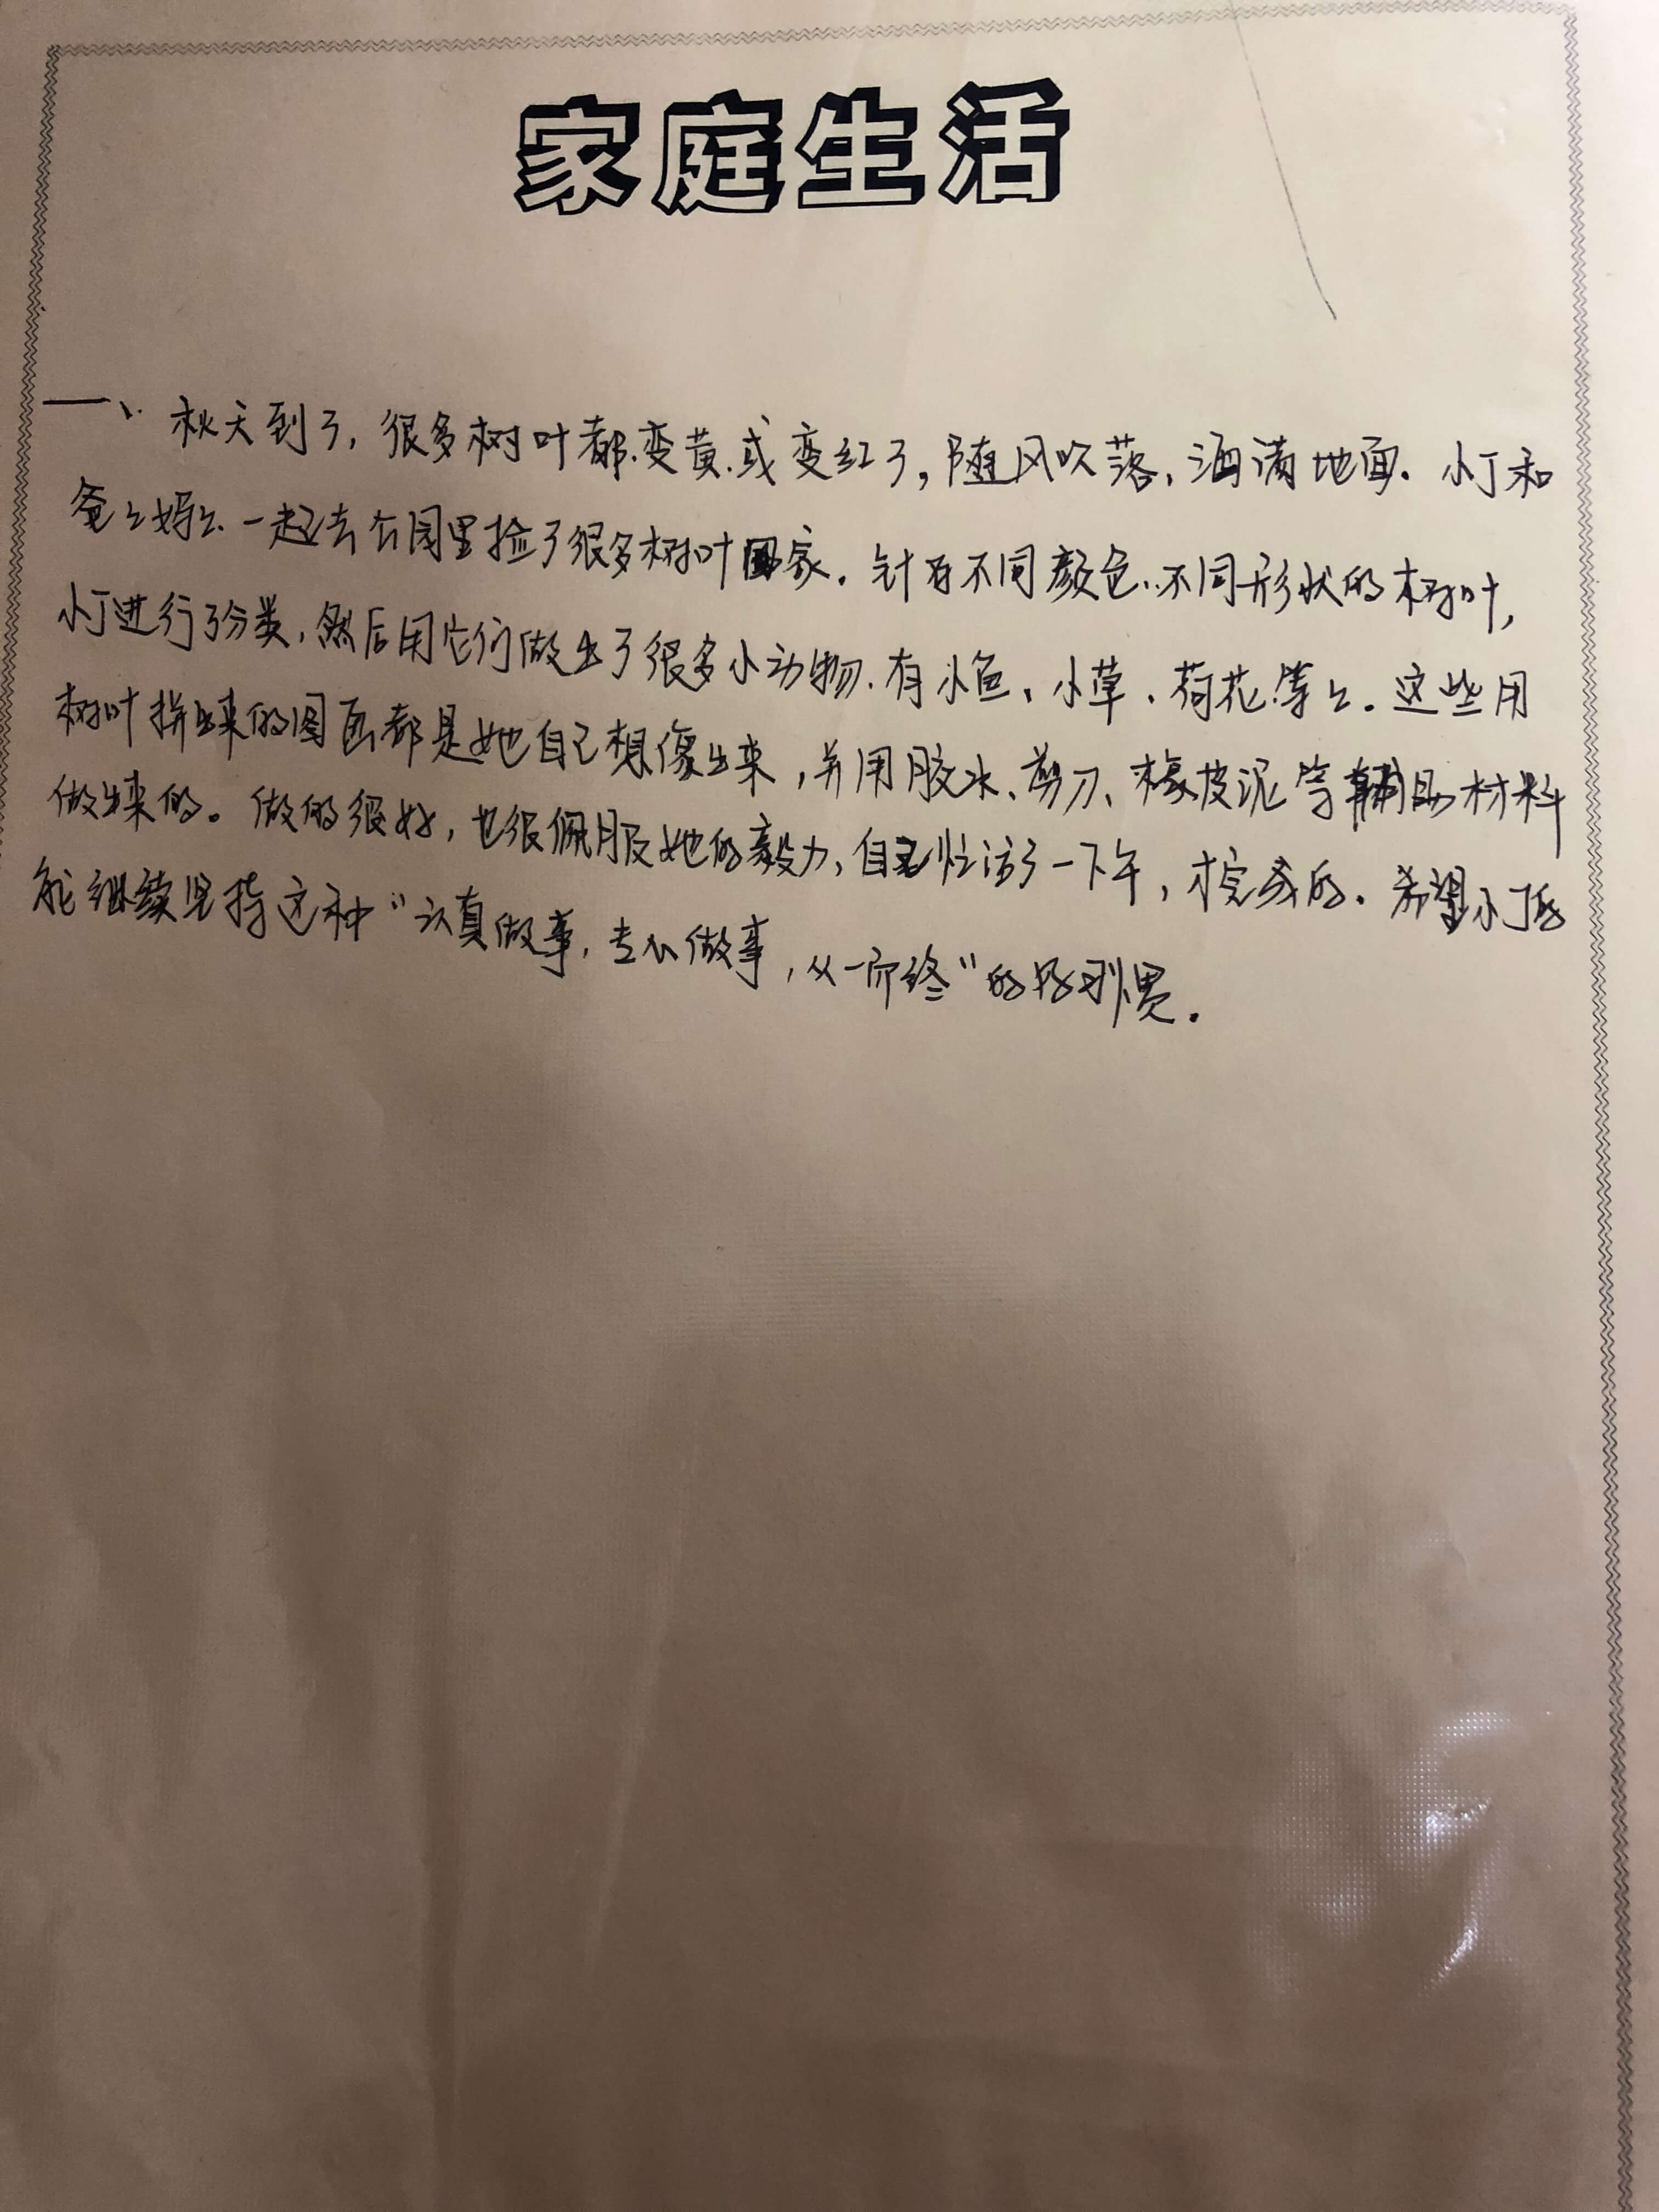 家庭生活
一、秋天到了,很多树叶都变黄或变红了,随风吹落,洒满地面。小丁和
爸々妈々一起去公园里捡了很多树叶回家。针对不同颜色、不同形状的树叶,
小丁进行了分类,然后用它们做出了很多小动物.有小鱼、小草、荷花等々。这些用
树叶拼出来的图画都是她自己想像出来,并用胶水、剪刀、橡皮泥等辅助材料
做出来的。做的很好,也很佩服她的毅力,自己忙活了一下午,才完成的。希望小丁
能继续坚持这种“认真做事,专心做事,从一而终”的好习惯。